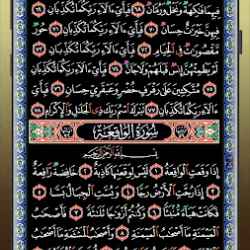 فِيهِمَا فَاكِهَةٌ وَنَخْلٌ وَرُمَّانٌ ٦٨ فَبِأَيِّ ءَالَآءِ رَبِّكُمَا تُكَذِّبَانِ ٦٩
فِيهِنَّ خَيْرَاتٌ حِسَانٌ ٧٠ فَبِأَيِّ ءَالَآءِ رَبِّكُمَا تُكَذِّبَانِ ٧١ حُورٌ
مَّقْصُورَاتٌ فِي الْخِيَامِ ٧٢ فَبِأَيِّ ءَالَآءِ رَبِّكُمَا تُكَذِّبَانِ ٧٣ لَمْ
يَطْمِثْهُنَّ إِنسٌ قَبْلَهُمْ وَلَا جَانٌّ ٧٤ فَبِأَيِّ ءَالَآءِ رَبِّكُمَا تُكَذِّبَانِ
٧٥ مُتَّكِئِينَ عَلَىٰ رَفْرَفٍ خُضْرٍ وَعَبْقَرِيٍّ حِسَانٍ ٧٦ فَبِأَيِّ
ءَالَآءِ رَبِّكُمَا تُكَذِّبَانِ ٧٧ تَبَارَكَ اسْمُ رَبِّكَ ذِي الْجَلَالِ وَالْإِكْرَامِ ٧٨
سُورَةُ الْوَاقِعَةِ
بِسْمِ اللَّهِ الرَّحْمَٰنِ الرَّحِيمِ
إِذَا وَقَعَتِ الْوَاقِعَةُ ١ لَيْسَ لِوَقْعَتِهَا كَاذِبَةٌ ٢ خَافِضَةٌ رَّافِعَةٌ
٣ إِذَا رُجَّتِ الْأَرْضُ رَجًّا ٤ وَبُسَّتِ الْجِبَالُ بَسًّا ٥
فَكَانَتْ هَبَاءً مُّنبَثًّا ٦ وَكُنتُمْ أَزْوَاجًا ثَلَاثَةً ٧ فَأَصْحَابُ
الْمَيْمَنَةِ مَا أَصْحَابُ الْمَيْمَنَةِ ٨ وَأَصْحَابُ الْمَشْأَمَةِ مَا أَصْحَابُ